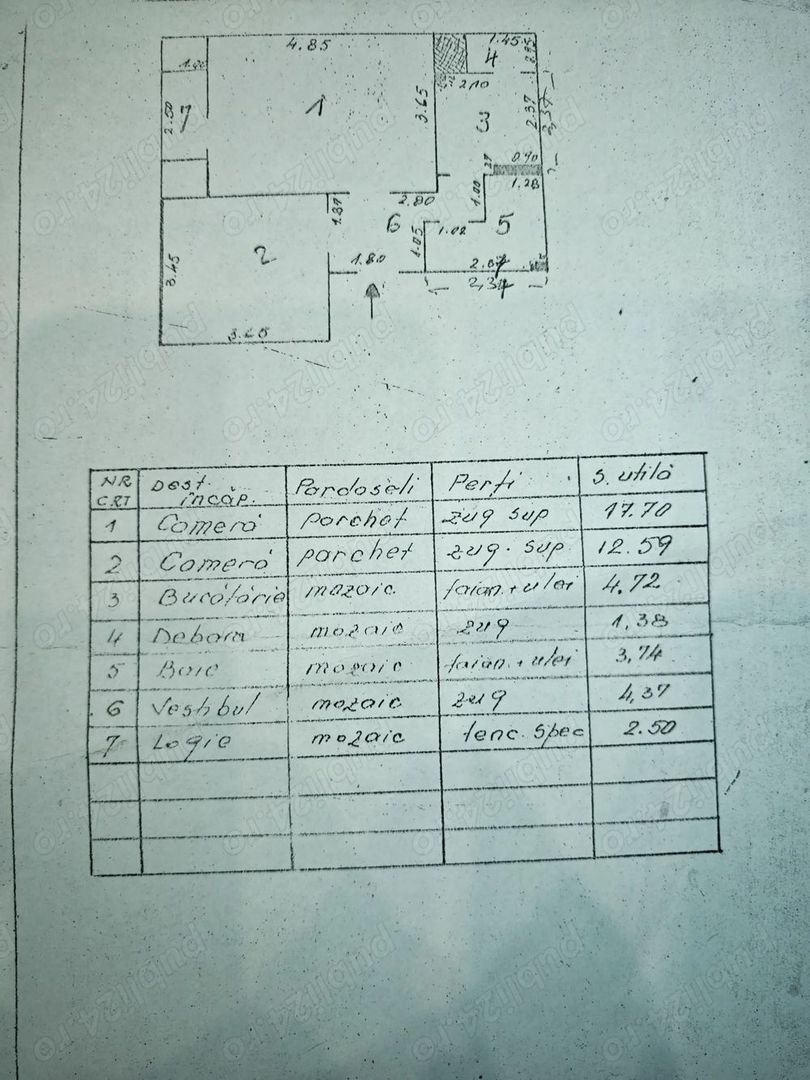 4.85
1.45
4
1.00
2.10
2.50
7
1
3.65
3
2.37
2,37
0.90
1.28
1.00
2.80
1.87
6
1.02
5
1.05
2
3.45
1.80
2,34
3.65
NR CRT Dest. încăp. Pardoseli Perți S. utilă
1 Cameră parchet zug sup 17.70
2 Cameră parchet zug. sup 12.59
3 Bucătărie mozaic faian.+ulei 4.72
4 Debara mozaic zug 1,38
5 Baie mozaic faian.+ulei 3,74
6 Vestibul mozaic zug 4,37
7 Logie mozaic tenc. spec 2.50
publi24.ro